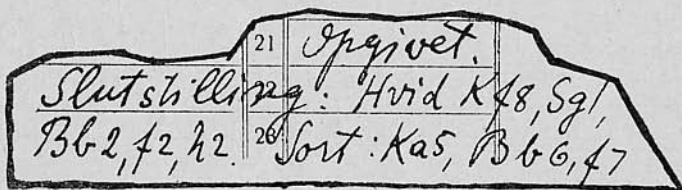 21 Opgivet.
Slutstilling: Hvid Kf8, Sg1,
Bb2, f2, h2. 20 Sort: Ka5, Bb6, f7